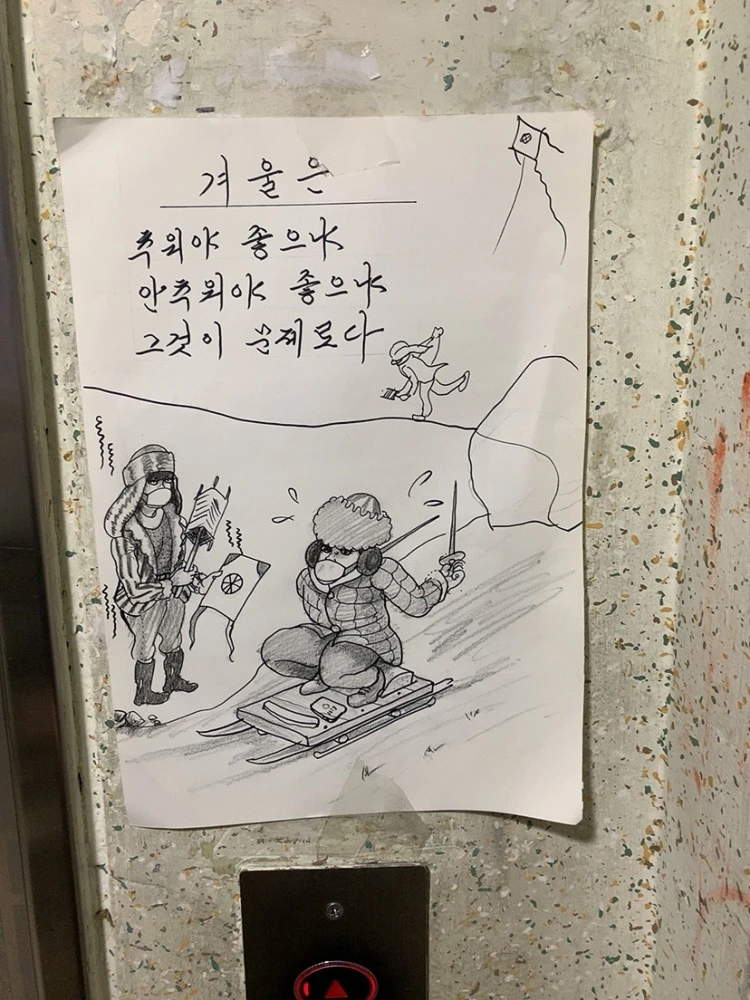 겨울은
추워야 좋으냐
안추워야 좋으냐
그것이 문제로다